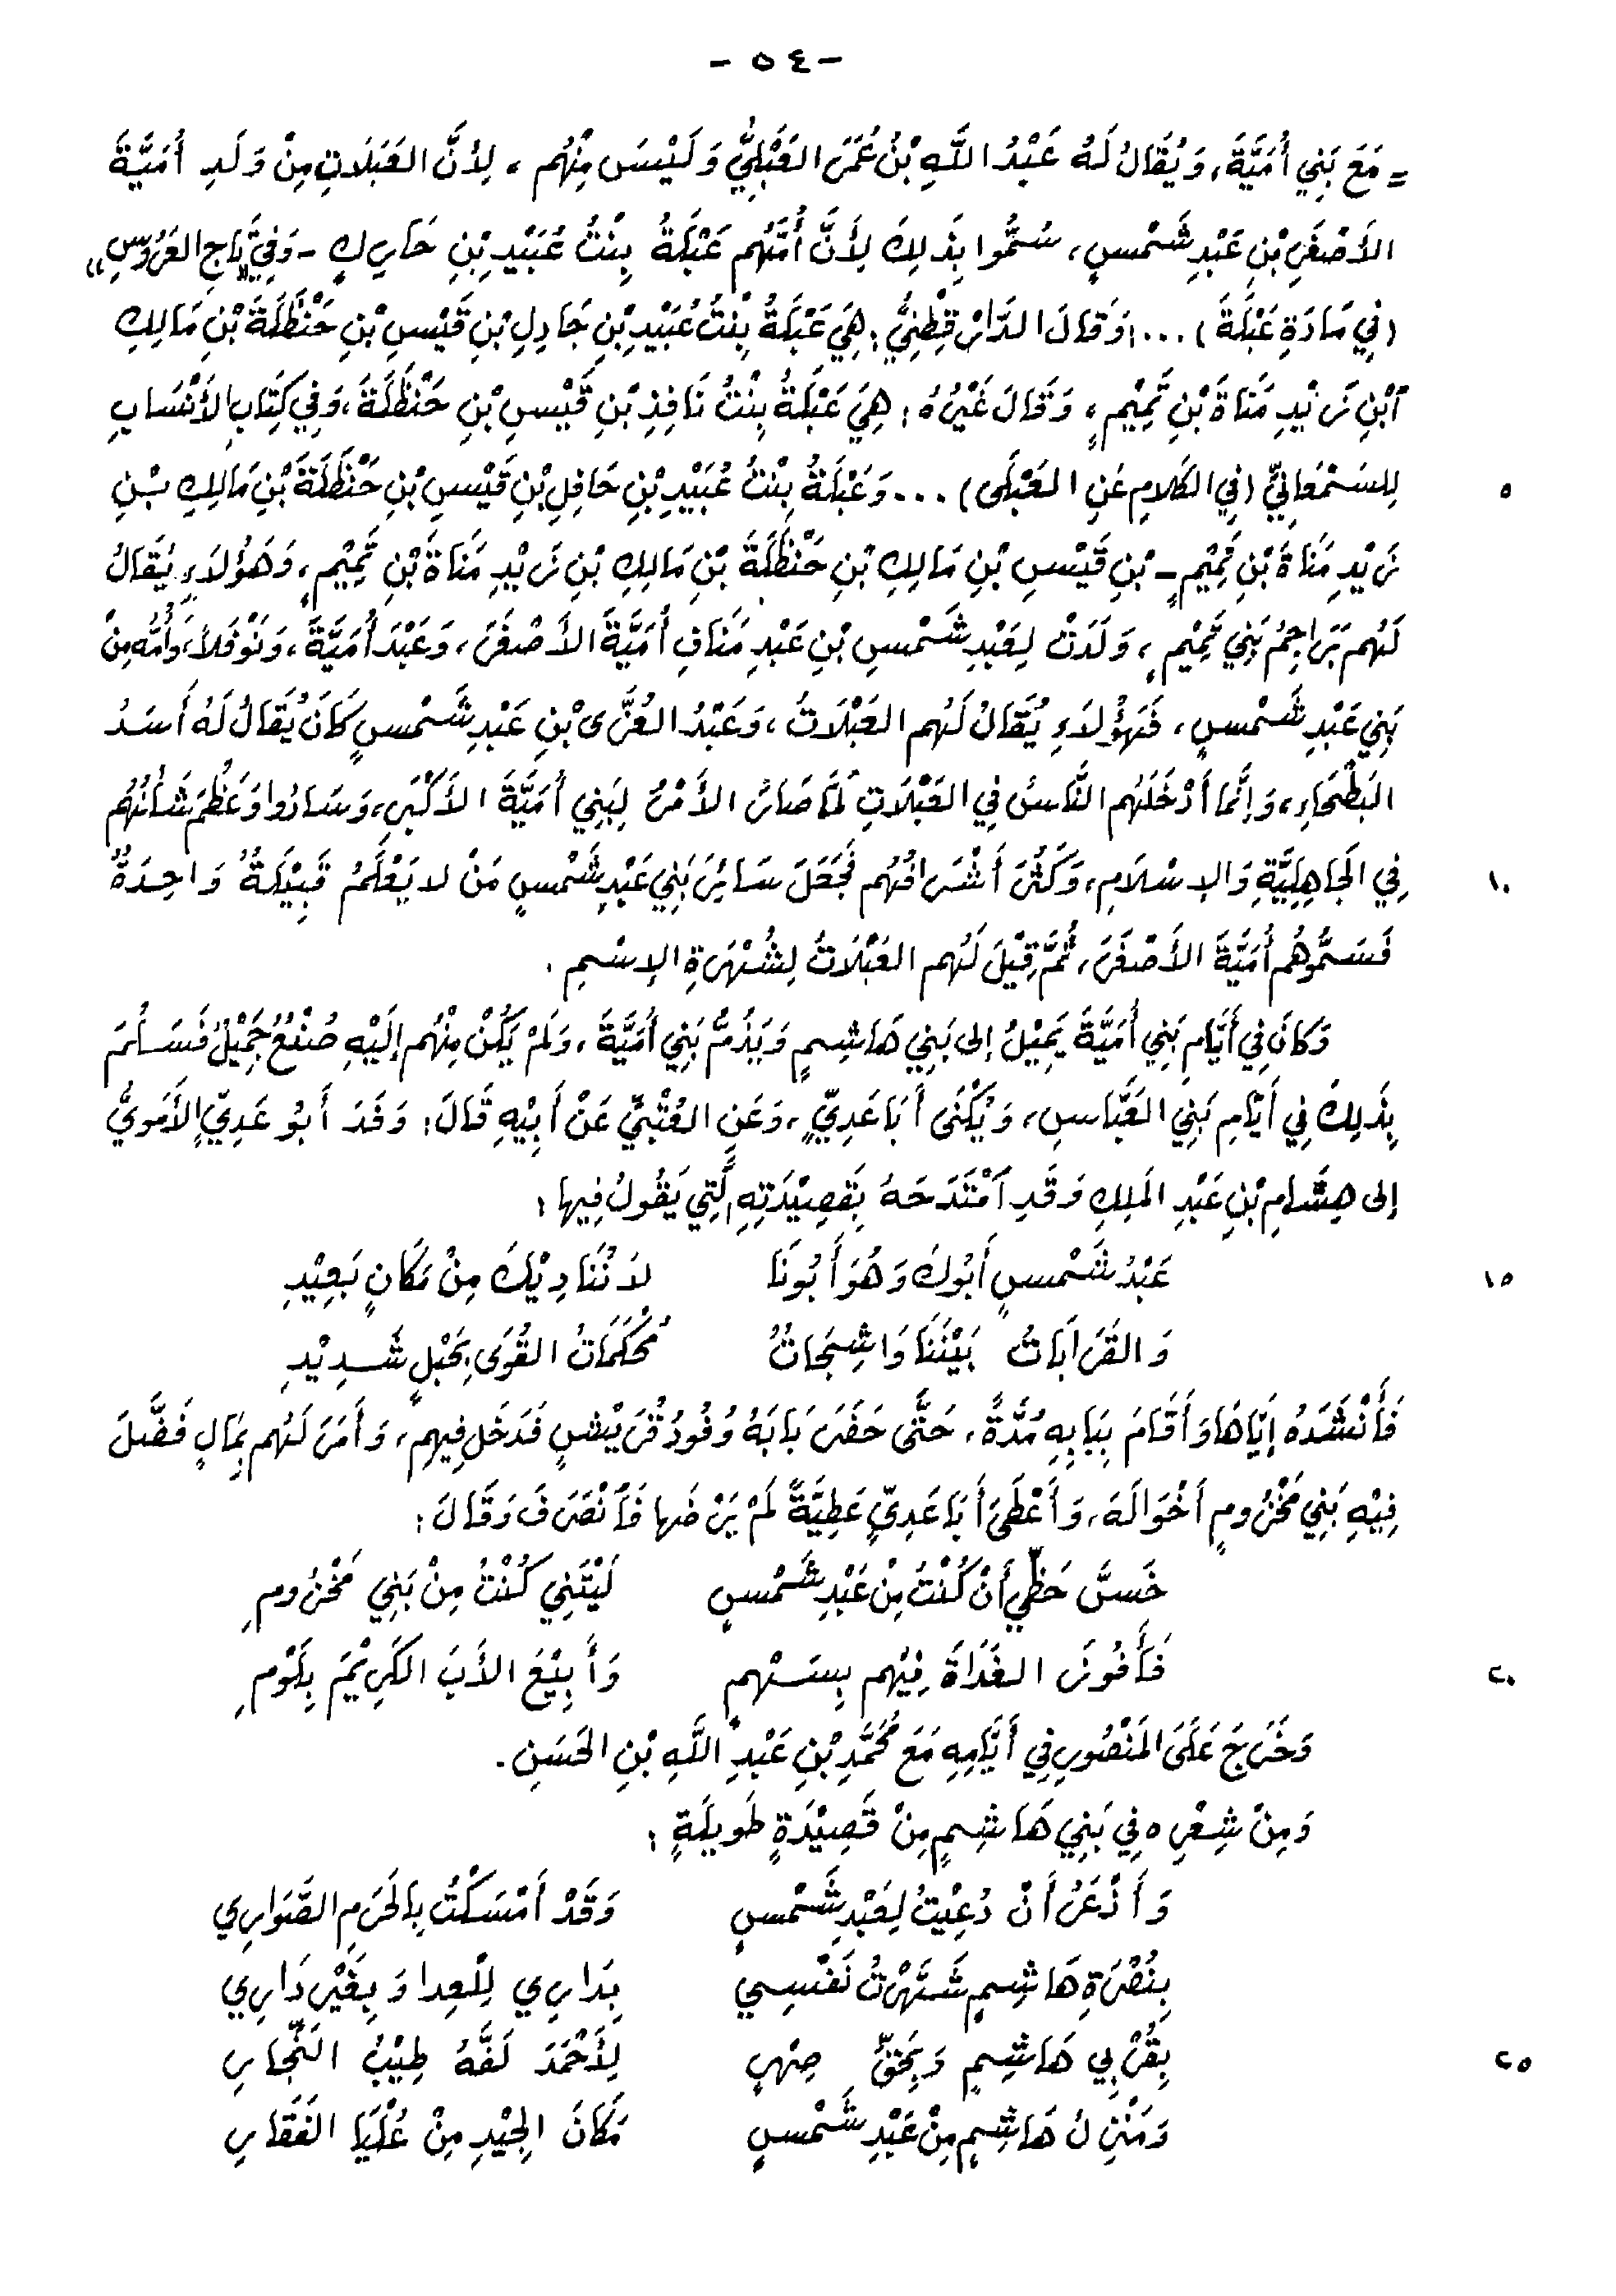 - ٥٤ -
= مَعَ بَنِي أُمَيَّةَ، وَيُقَالُ لَهُ عَبْدُ اللَّهِ بْنُ عُمَرَ العَبْلِيُّ وَلَيْسَ مِنْهُم، لِأنَّ العَبَلَاتِ مِنْ وَلَدِ أُمَيَّةَ
الأَصْغَرِ بْنِ عَبْدِ شَمْسٍ، سُمُّوا بِذَلِكَ لِأَنَّ أُمَّهُم عَبْلَةُ بِنْتُ عُبَيْدِ بْنِ حَارِكٍ - وَفِي «تَاجِ العَرُوسِ»
(فِي مَادَةِ عَبْلَةَ) ... : وَقَالَ الدَّارَقُطْنِيُّ : هِيَ عَبْلَةُ بِنْتُ عُبَيْدِ بْنِ جَادِلِ بْنِ قَيْسِ بْنِ حَنْظَلَةَ بْنِ مَالِكِ
ٱبْنِ زَيْدِ مَنَاةَ بْنِ تَمِيْمٍ، وَقَالَ غَيْرُهُ : هِيَ عَبْلَةُ بِنْتُ نَافِذِ بْنِ قَيْسِ بْنِ حَنْظَلَةَ، وَفِي كِتَابِ الأَنْسَابِ
٥ لِلسَمْعَانِيِّ (فِي الكَلَامِ عَنِ العَبْلَى) ... وَعَبْلَةُ بِنْتُ عُبَيْدِ بْنِ حَافِلِ بْنِ قَيْسِ بْنِ حَنْظَلَةَ بْنِ مَالِكِ بْنِ
زَيْدِ مَنَاةَ بْنِ تَمِيْمٍ - بْنِ قَيْسِ بْنِ مَالِكِ بْنِ حَنْظَلَةَ بْنِ مَالِكِ بْنِ زَيْدِ مَنَاةَ بْنِ تَمِيْمٍ، وَهَؤُلَاءِ يُقَالُ
لَهُم بَرَاجِمُ بَنِي تَمِيْمٍ، وَلَدَتْ لِعَبْدِ شَمْسِ بْنِ عَبْدِ مَنَافِ أُمَيَّةَ الأَصْغَرَ، وَعَبْدَ أُمَيَّةَ، وَنَوْفَلاً، وَأُمُّه مِنْ
بَنِي عَبْدِ شَمْسٍ، فَهَؤُلَاءِ يُقَالُ لَهُم العَبْلَاتُ، وَعَبْدُ العُزَّى بْنِ عَبْدِ شَمْسٍ كَانَ يُقَالُ لَهُ أَسَدُ
البَطْحَاءِ، وَإنَّمَا أَدْخَلَهُم النَّاسُ فِي العَبْلَاتِ لَمَّا صَارَ الأَمْرُ لِبَنِي أُمَيَّةَ الأَكْبَرِ، وَسَادُوا وَعَظُمَ شَأنُهُم
١٠ فِي الجَاهِلِيَّةِ وَالإسْلَامِ، وَكَثُرَ أَشْرَافُهُم فَجَعَلَ سَائِرَ بَنِي عَبْدِ شَمْسٍ مَنْ لا يَعْلَمُ قَبِيْلَةً وَاحِدَةً
فَسَمَّوهُم أُمَيَّةَ الأَصْغَرَ، ثُمَّ قِيْلَ لَهُم العَبْلَاتُ لِشُهْرَةِ الإسْمِ .
وَكَانَ فِي أَيَّامِ بَنِي أُمَيَّةَ يَمِيْلُ إلى بَنِي هَاشِمٍ وَيَذُمُّ بَنِي أُمَيَّةَ، وَلَمْ يَكُنْ مِنْهُم إلَيْهِ صُنْعٌ جَمِيْلٌ فَسَلِمَ
بِذَلِكَ فِي أَيَّامِ بَنِي العَبَّاسِ، وَيُكْنَى أَبَا عَدِيٍّ، وَعَنِ العُتْبِيِّ عَنْ أَبِيْهِ قَالَ: وَفَدَ أَبُو عَدِيٍّ الأَمَوِيُّ
إلى هِشَامِ بْنِ عَبْدِ المَلِكِ وَقَدِ ٱمْتَدَحَهُ بِقَصِيْدَتِهِ الَّتِي يَقُولُ فِيها :
١٥ عَبْدُ شَمْسٍ أَبُوكَ وَهُوَ أَبُونَا لاَ نُنَادِيْكَ مِنْ مَكَانٍ بَعِيْدِ
وَالقَرَابَاتُ بَيْنَنَا وَاشِجَاتٌ مُحْكَمَاتُ القُوَى بِحَبْلٍ شَدِيْدِ
فَأَنْشَدَهُ إيَّاهَا وَأَقَامَ بِبَابِهِ مُدَّةً، حَتَّى حَضَرَ بَابَهُ وُفُودُ قُرَيْشٍ فَدَخَلَ فِيهِم، وَأَمَرَ لَهُم بِمَالٍ فَضَّلَ
فِيْهِ بَنِي مَخْزُومٍ أَخْوَالَهُ، وَأَعْطَى أَبَا عَدِيٍّ عَطِيَّةً لَمْ يَرْضَها فَٱنْصَرَفَ وَقَالَ :
خَسَّ حَظِّي أَنْ كُنْتُ مِنْ عَبْدِ شَمْسٍ لَيْتَنِي كُنْتُ مِنْ بَنِي مَخْزُومِ
٢٠ فَأَفُوزَ الغَدَاةَ فِيْهِم بِسَهْمٍ وَأَبِيْعَ الأَبَ الكَرِيْمَ بِلَوْمِ
وَخَرَجَ عَلَى المَنْصُورِ فِي أَيَّامِهِ مَعَ مُحَمَّدِ بْنِ عَبْدِ اللَّهِ بْنِ الحَسَنِ .
وَمِنْ شِعْرِهِ فِي بَنِي هَاشِمٍ مِنْ قَصِيْدَةٍ طَوِيلَةٍ :
وَأَذْعَرُ أَنْ دُعِيْتُ لِعَبْدِ شَمْسٍ وَقَدْ أَمْسَكْتُ بِالحَرَمِ الصَّوَارِي
بِنُصْرَةِ هَاشِمٍ شَهَّرْتُ نَفْسِي بِدَارِي لِلْعِدا وَبِغَيْرِ دَارِي
٢٥ بِقُرْبِي هَاشِمٍ وَبِحَقِّ صِهْرٍ لِأَحْمَدَ لَفَّهُ طِيْبُ النِّجَارِ
وَمَنْزِلُ هَاشِمٍ مِنْ عَبْدِ شَمْسٍ مَكَانَ الجِيْدِ مِنْ عُلْيَا الفَقَارِ